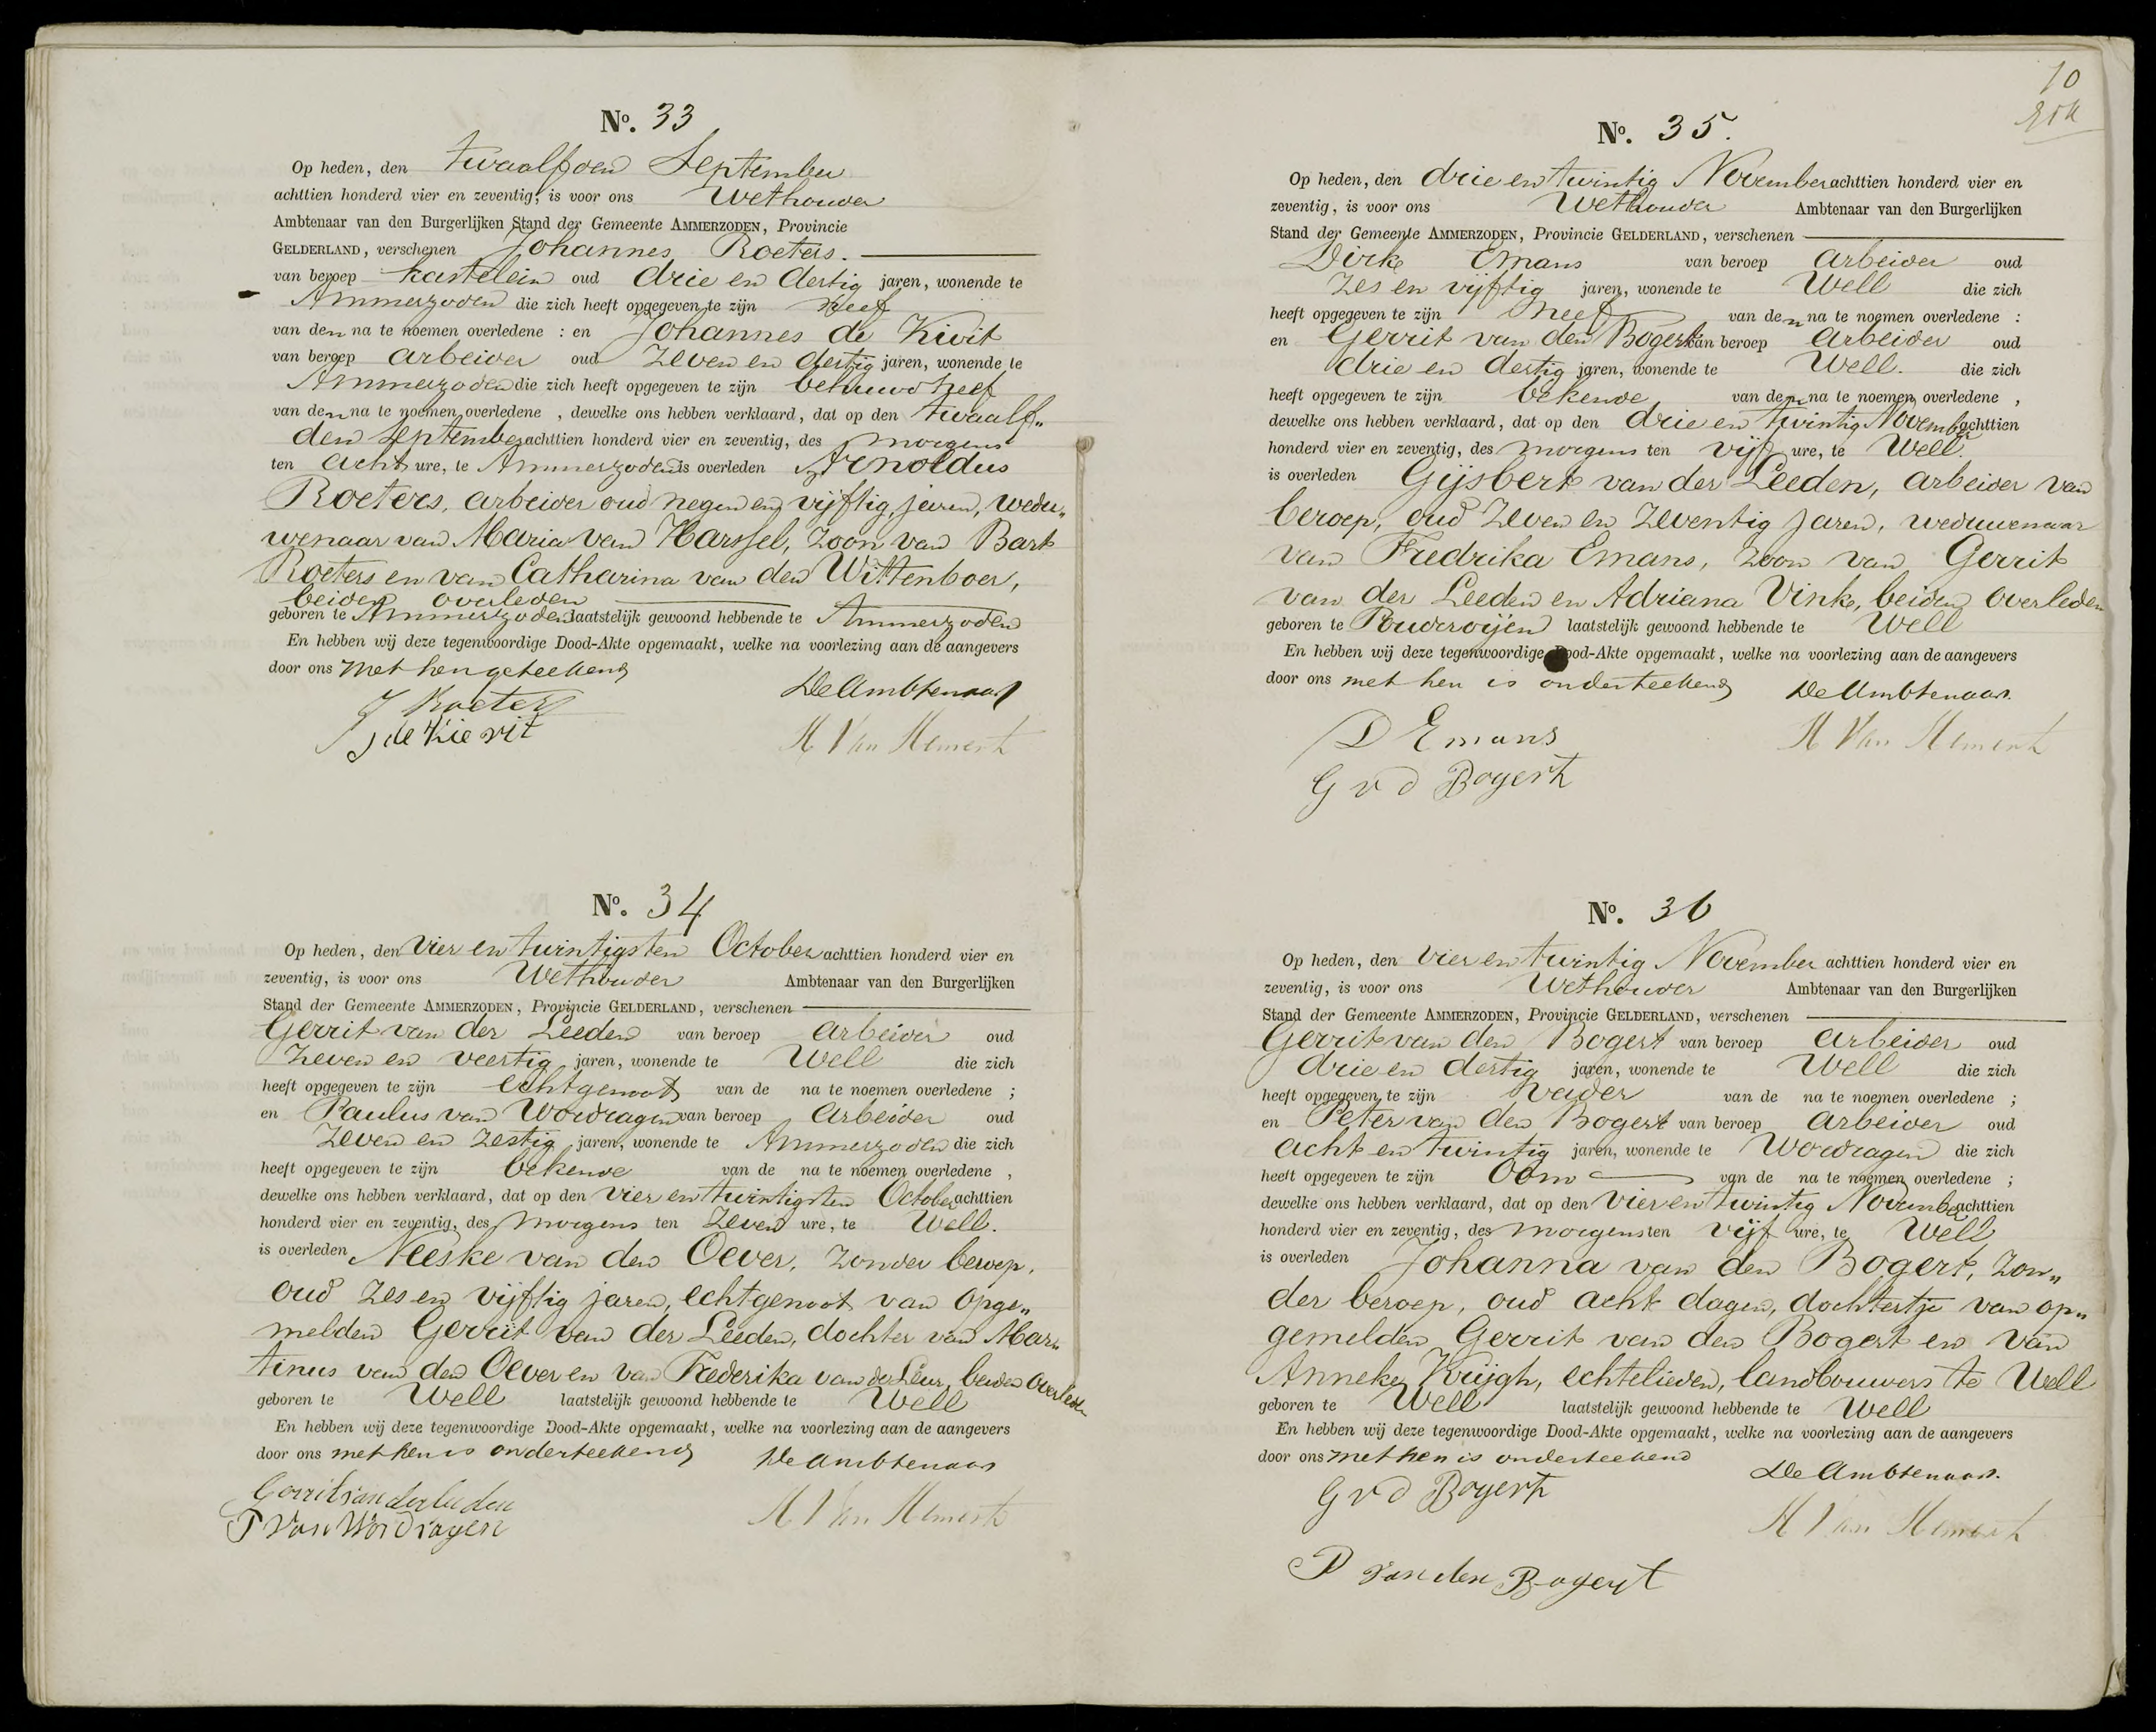 Nº. 33
Op heden, den twaalfden September
achttien honderd vier en zeventig, is voor ons Wethouder
Ambtenaar van den Burgerlijken Stand der Gemeente AMMERZODEN, Provincie
GELDERLAND, verschenen Johannes Roeters.
van beroep kastelein oud drie en dertig jaren, wonende te
Ammerzoden die zich heeft opgegeven te zijn neef
van den na te noemen overledene : en Johannes de Kivit
van beroep arbeider oud zeven en dertig jaren, wonende te
Ammerzoden die zich heeft opgegeven te zijn behuwd neef
van den na te noemen overledene , dewelke ons hebben verklaard, dat op den twaalf„
den September achttien honderd vier en zeventig, des morgens
ten acht ure, te Ammerzoden is overleden Arnoldus
Roeters, arbeider oud negen en vijftig jaren, wedu„
wenaar van Maria van Harssel, zoon van Bart
Roeters en van Catharina van den Wittenboer,
beiden overleden
geboren te Ammerzoden laatstelijk gewoond hebbende te Ammerzoden
En hebben wij deze tegenwoordige Dood-Akte opgemaakt, welke na voorlezing aan de aangevers
door ons met hen geteekend
De Ambtenaar
J Roeters
J de Kievit
M Van Hemert
Nº. 34
Op heden, den vier en twintigsten October achttien honderd vier en
zeventig, is voor ons Wethouder Ambtenaar van den Burgerlijken
Stand der Gemeente AMMERZODEN, Provincie GELDERLAND, verschenen
Gerrit van der Leeden van beroep arbeider oud
zeven en veertig jaren, wonende te Well die zich
heeft opgegeven te zijn echtgenoot van de na te noemen overledene ;
en Paulus van Wordragen van beroep arbeider oud
zeven en zestig jaren, wonende te Ammerzoden die zich
heeft opgegeven te zijn bekende van de na te noemen overledene ,
dewelke ons hebben verklaard, dat op den vier en twintigsten October achttien
honderd vier en zeventig, des morgens ten zeven ure, te Well.
is overleden Neeske van den Oever, zonder beroep,
oud zes en vijftig jaren, echtgenoot van opge„
melden Gerrit van der Leeden, dochter van Mar„
tinus van den Oever en van Frederika van der Leur, beiden overleden
geboren te Well laatstelijk gewoond hebbende te Well
En hebben wij deze tegenwoordige Dood-Akte opgemaakt, welke na voorlezing aan de aangevers
door ons met hen is onderteekend De Ambtenaar
Gerrit van der leeden
P Van Wordragen
M Van Hemert
10
Nº. 35.
Op heden, den drie en twintig November achttien honderd vier en
zeventig, is voor ons Wethouder Ambtenaar van den Burgerlijken
Stand der Gemeente AMMERZODEN, Provincie GELDERLAND, verschenen
Dirk Emans van beroep arbeider oud
zes en vijftig jaren, wonende te Well die zich
heeft opgegeven te zijn neef van den na te noemen overledene :
en Gerrit van den Bogert van beroep arbeider oud
drie en dertig jaren, wonende te Well. die zich
heeft opgegeven te zijn bekende van den na te noemen overledene ,
dewelke ons hebben verklaard, dat op den drie en twintig November achttien
honderd vier en zeventig, des morgens ten vijf ure, te Well.
is overleden Gijsbert van der Leeden, arbeider van
beroep, oud zeven en zeventig jaren, weduwenaar
van Fredrika Emans, zoon van Gerrit
van der Leeden en Adriana Vinke, beiden overleden
geboren te Pouderoijen laatstelijk gewoond hebbende te Well
En hebben wij deze tegenwoordige Dood-Akte opgemaakt, welke na voorlezing aan de aangevers
door ons met hen is onderteekend De Ambtenaar.
D Emans
G v d Bogert
M Van Hemert
Nº. 36
Op heden, den vier en twintig November achttien honderd vier en
zeventig, is voor ons Wethouder Ambtenaar van den Burgerlijken
Stand der Gemeente AMMERZODEN, Provincie GELDERLAND, verschenen
Gerrit van den Bogert van beroep arbeider oud
drie en dertig jaren, wonende te Well die zich
heeft opgegeven te zijn vader van de na te noemen overledene ;
en Peter van den Bogert van beroep arbeider oud
acht en twintig jaren, wonende te Wordragen die zich
heeft opgegeven te zijn Oom van de na te noemen overledene ;
dewelke ons hebben verklaard, dat op den vier en twintig November achttien
honderd vier en zeventig, des morgens ten vijf ure, te Well
is overleden Johanna van den Bogert, zon„
der beroep, oud acht dagen, dochtertje van op„
gemelden Gerrit van den Bogert en van
Anneke Kruijgh, echtelieden, landbouwers te Well
geboren te Well laatstelijk gewoond hebbende te Well
En hebben wij deze tegenwoordige Dood-Akte opgemaakt, welke na voorlezing aan de aangevers
door ons met hen is onderteekend
De Ambtenaar.
G v d Bogert
M Van Hemert
P van den Bogert